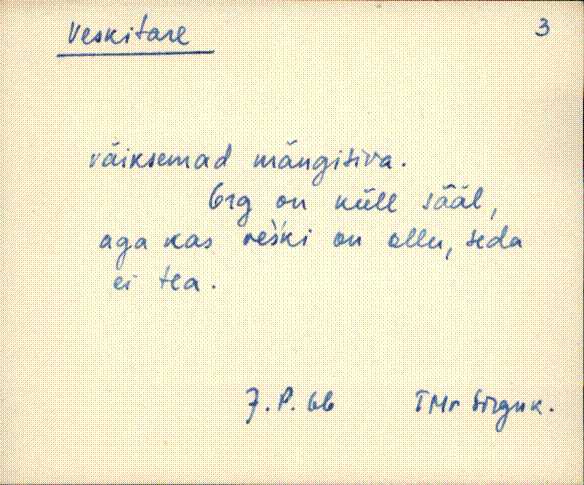 Veskitare 3
väiksemad mängisiva.
Org on küll sääl,
aga kas veski on ollu, seda
ei tea.
J.P. 66 TMr Sirguk.